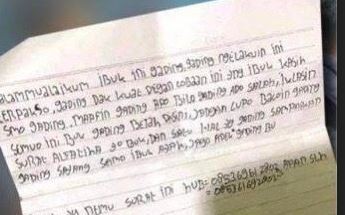 alammualaikum IBUK INI gading, gading ngelakuin ini
terpakso, gading dak kuat degan cobaan ini yng IBUK kasih
samo gading. MAAFIN gading ado Bilo gading ado SALAH, IKLASIN
SEMUO INI BUK gading BETAH DISNI, JANGAN LUPO BACOIN gading
SURAT ALFATIHA YO BUK, DAN SATU HAL yg gading SAMPAIKAN
gading SAYANG SAMO IBUK AYAH, JAGO ADEK gading BU
NEMU SURAT INI HUB=